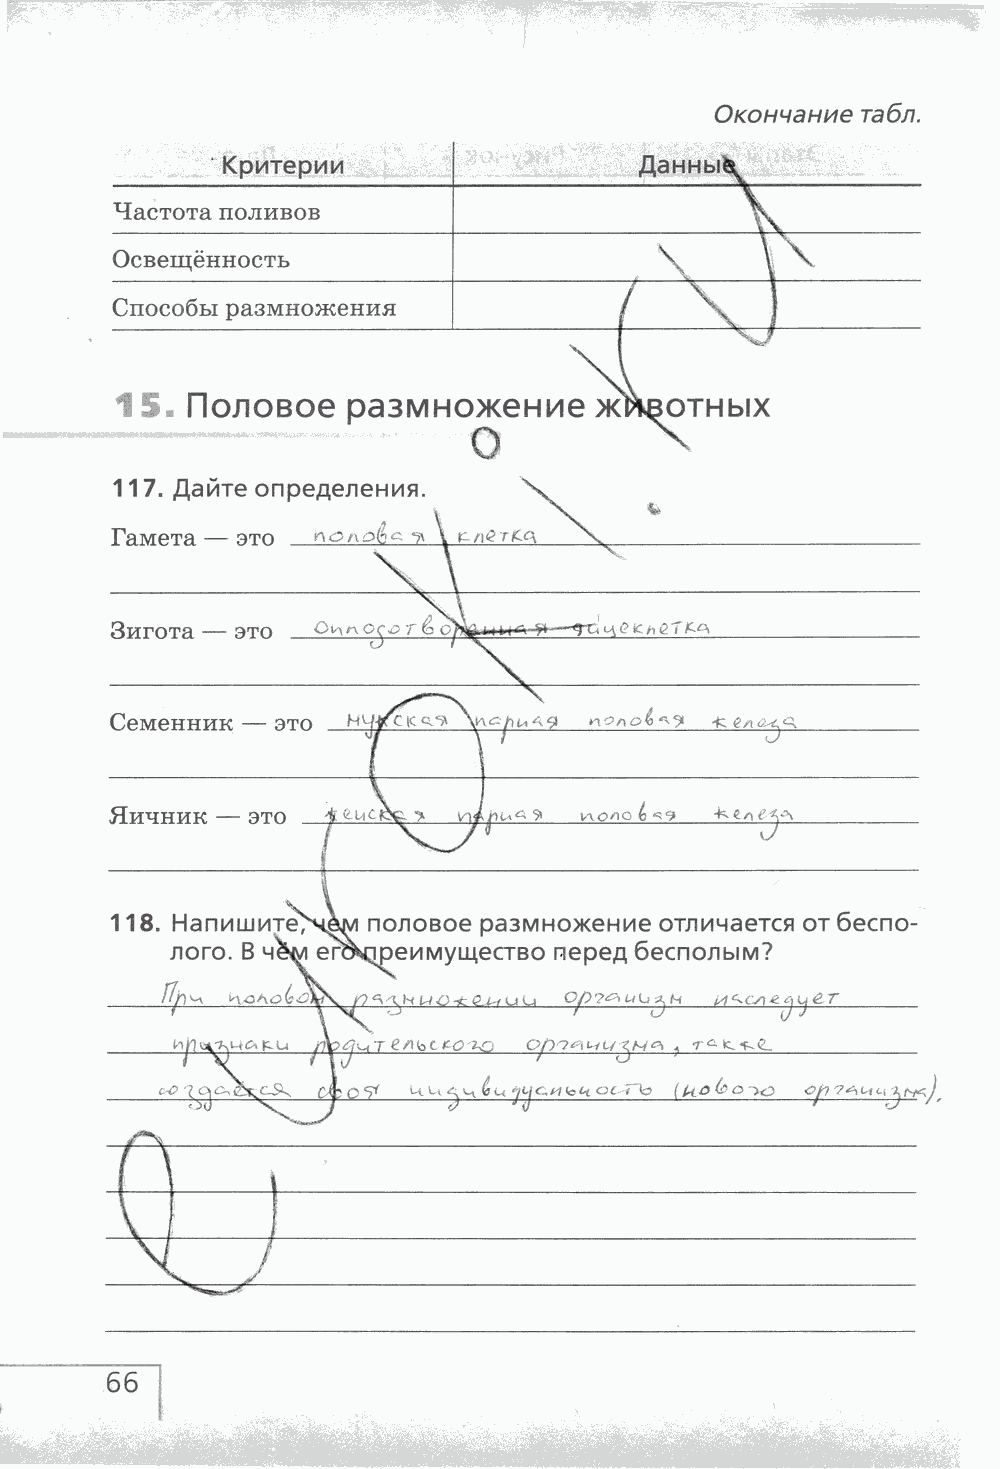 Окончание табл.
Критерии Данные
Частота поливов
Освещённость
Способы размножения
15. Половое размножение животных
117. Дайте определения.
Гамета — это половая клетка
Зигота — это Оплодотворенная яйцеклетка
Семенник — это мужская парная половая железа
Яичник — это женская парная половая железа
118. Напишите, чем половое размножение отличается от беспо-
лого. В чём его преимущество перед бесполым?
При половом размножении организм наследует
признаки родительского организма, также
создаётся своя индивидуальность (нового организма).
66
euroki.ru